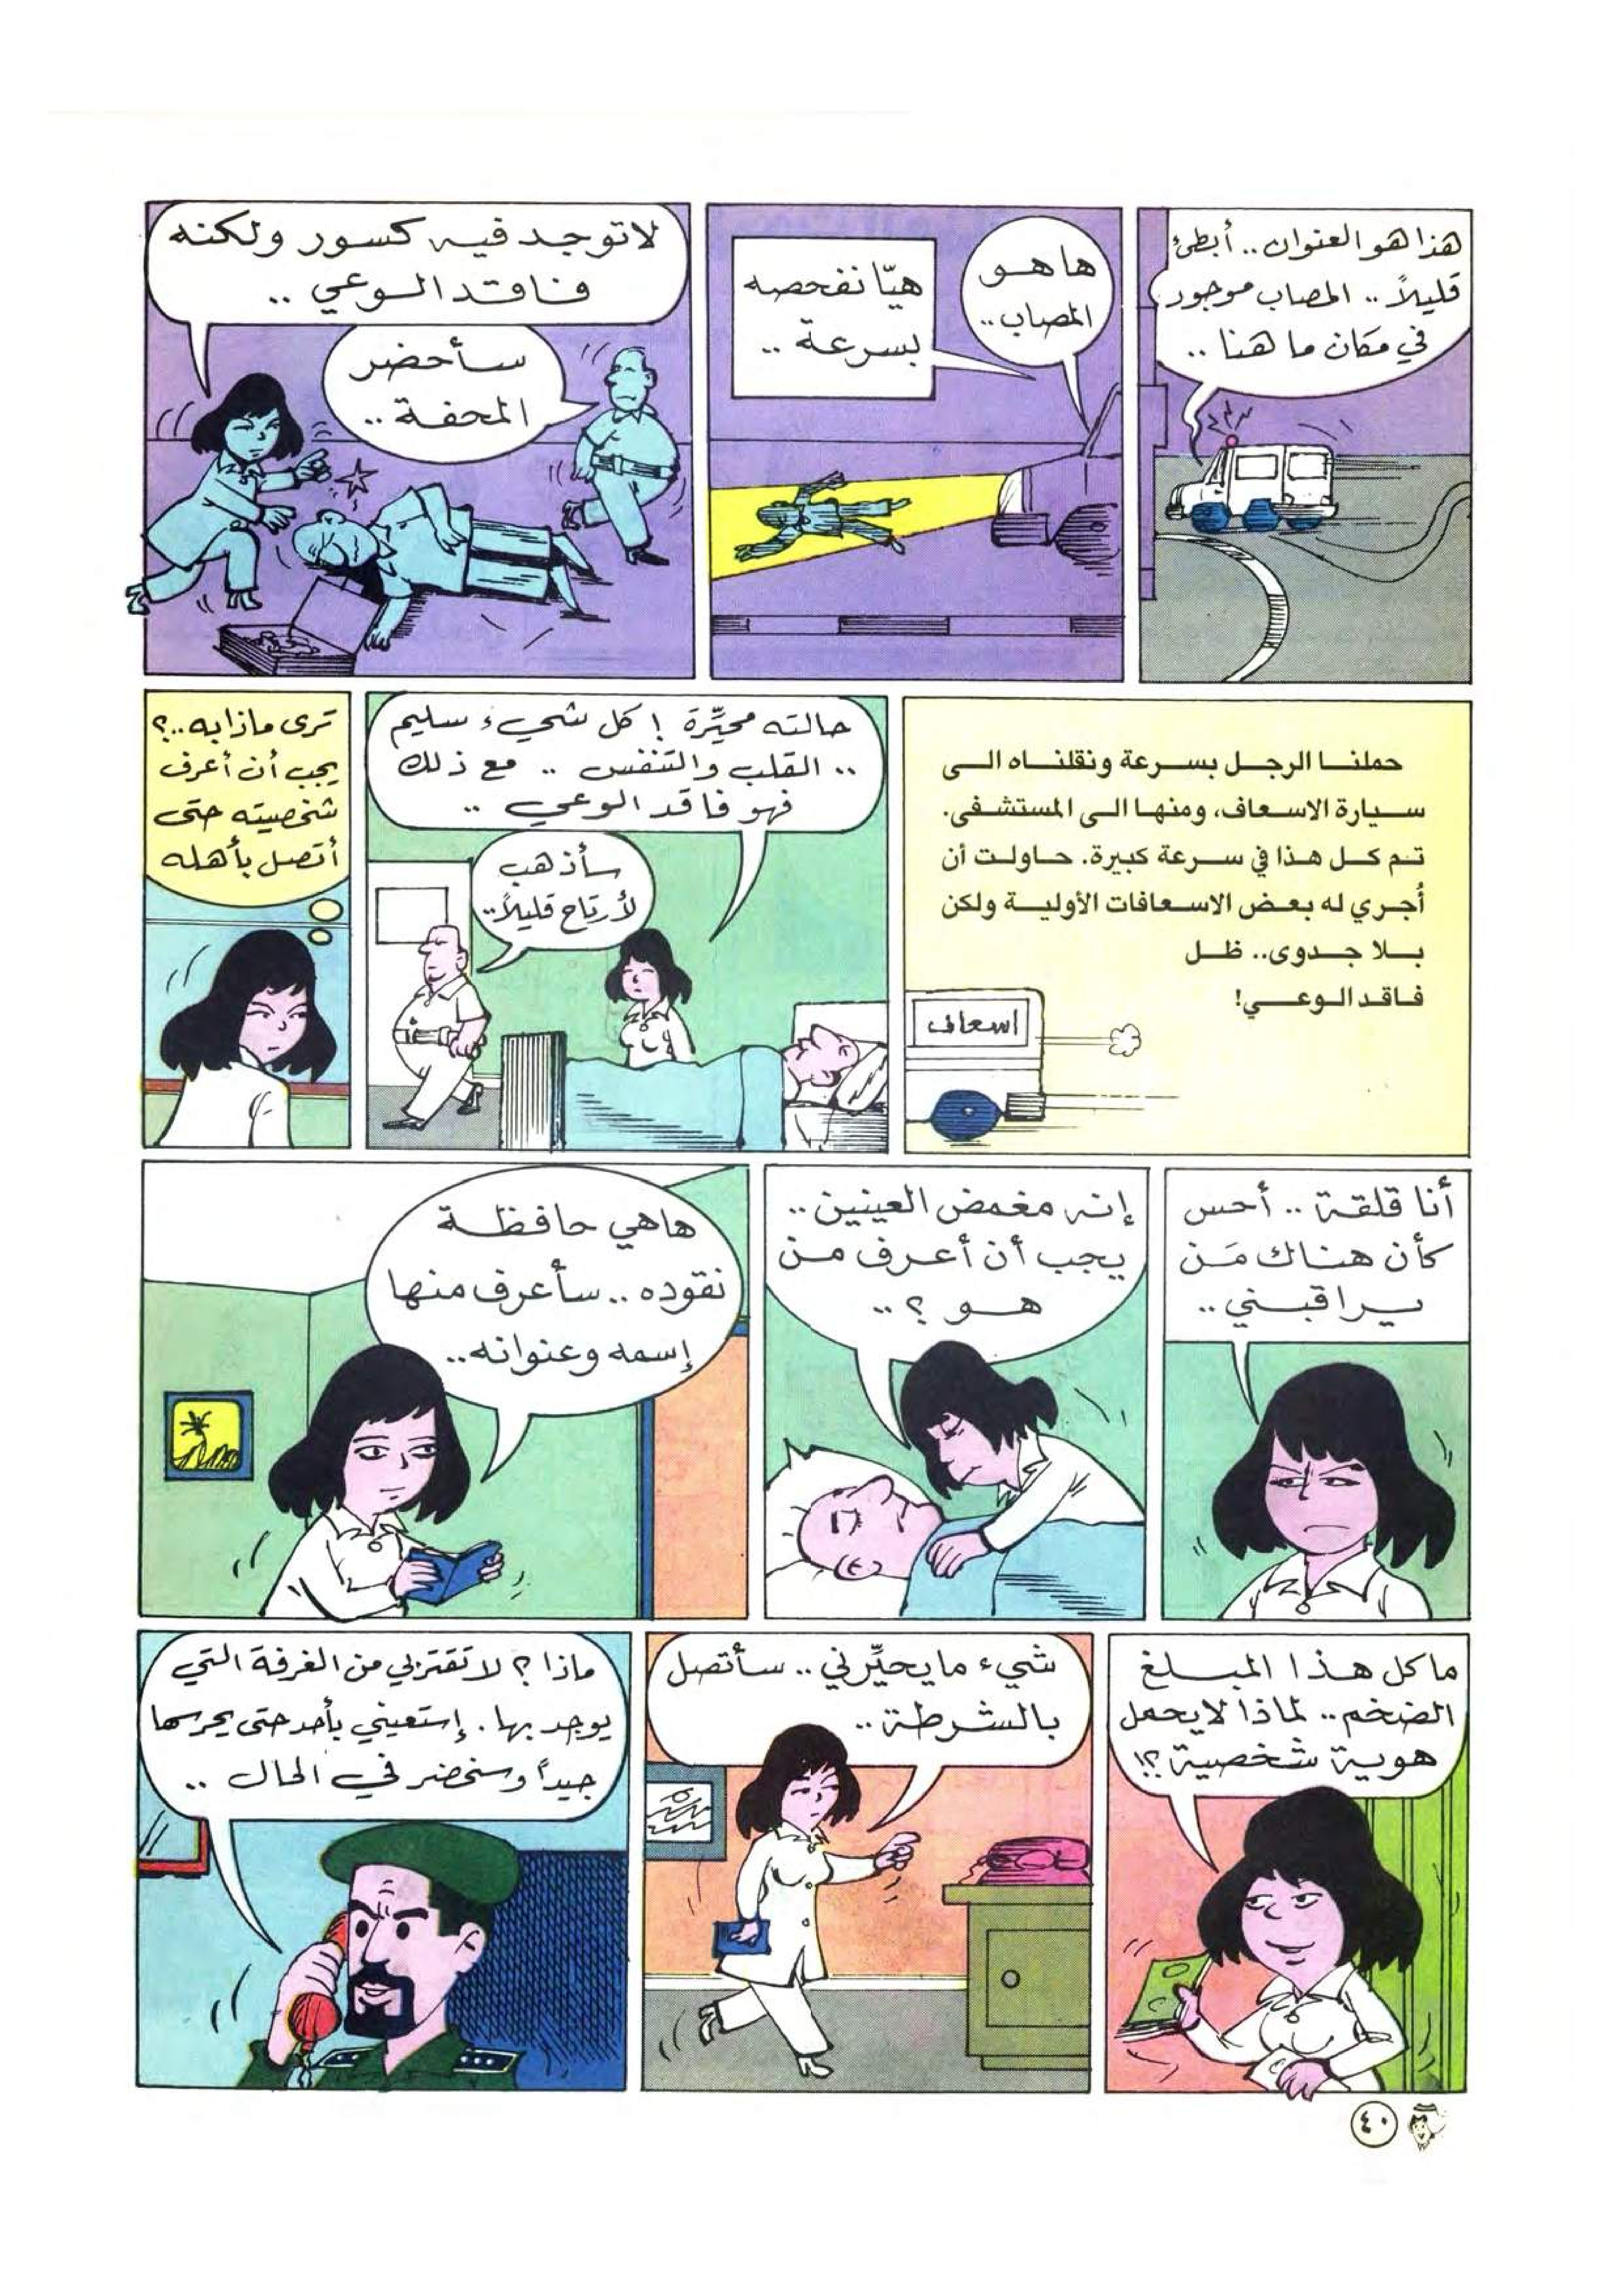 هذا هو العنوان.. أبطئ
قليلاً.. المصاب موجود
في مكان ما هنا ..
ها هو
المصاب..
هيّا نفحصه
بسرعة ..
لا توجد فيه كسور ولكنه
فاقد الوعي ..
سأحضر
المحفة ..
حملنا الرجل بسرعة ونقلناه الى
سيارة الاسعاف، ومنها الى المستشفى.
تم كل هذا في سرعة كبيرة. حاولت أن
أُجري له بعض الاسعافات الأولية ولكن
بلا جدوى.. ظل
فاقد الوعي!
اسعاف
حالته محيِّرة ! كل شيء سليم
.. القلب والتنفس .. مع ذلك
فهو فاقد الوعي ..
سأذهب
لأرتاح قليلاً..
ترى ماذا به..؟
يجب أن أعرف
شخصيته حتى
أتصل بأهله
أنا قلقة .. أحس
كأن هناك مَن
يراقبني ..
إنه مغمض العينين ..
يجب أن أعرف من
هو ؟ ..
ها هي حافظة
نقوده .. سأعرف منها
إسمه وعنوانه..
ما كل هذا المبلغ
الضخم.. لماذا لا يحمل
هوية شخصية ؟!
شيء ما يحيِّرني .. سأتصل
بالشرطة ..
ماذا ؟ لا تقتربي من الغرفة التي
يوجد بها. إستعيني بأحد حتى يحرسها
جيداً وسنحضر في الحال ..
٤٠